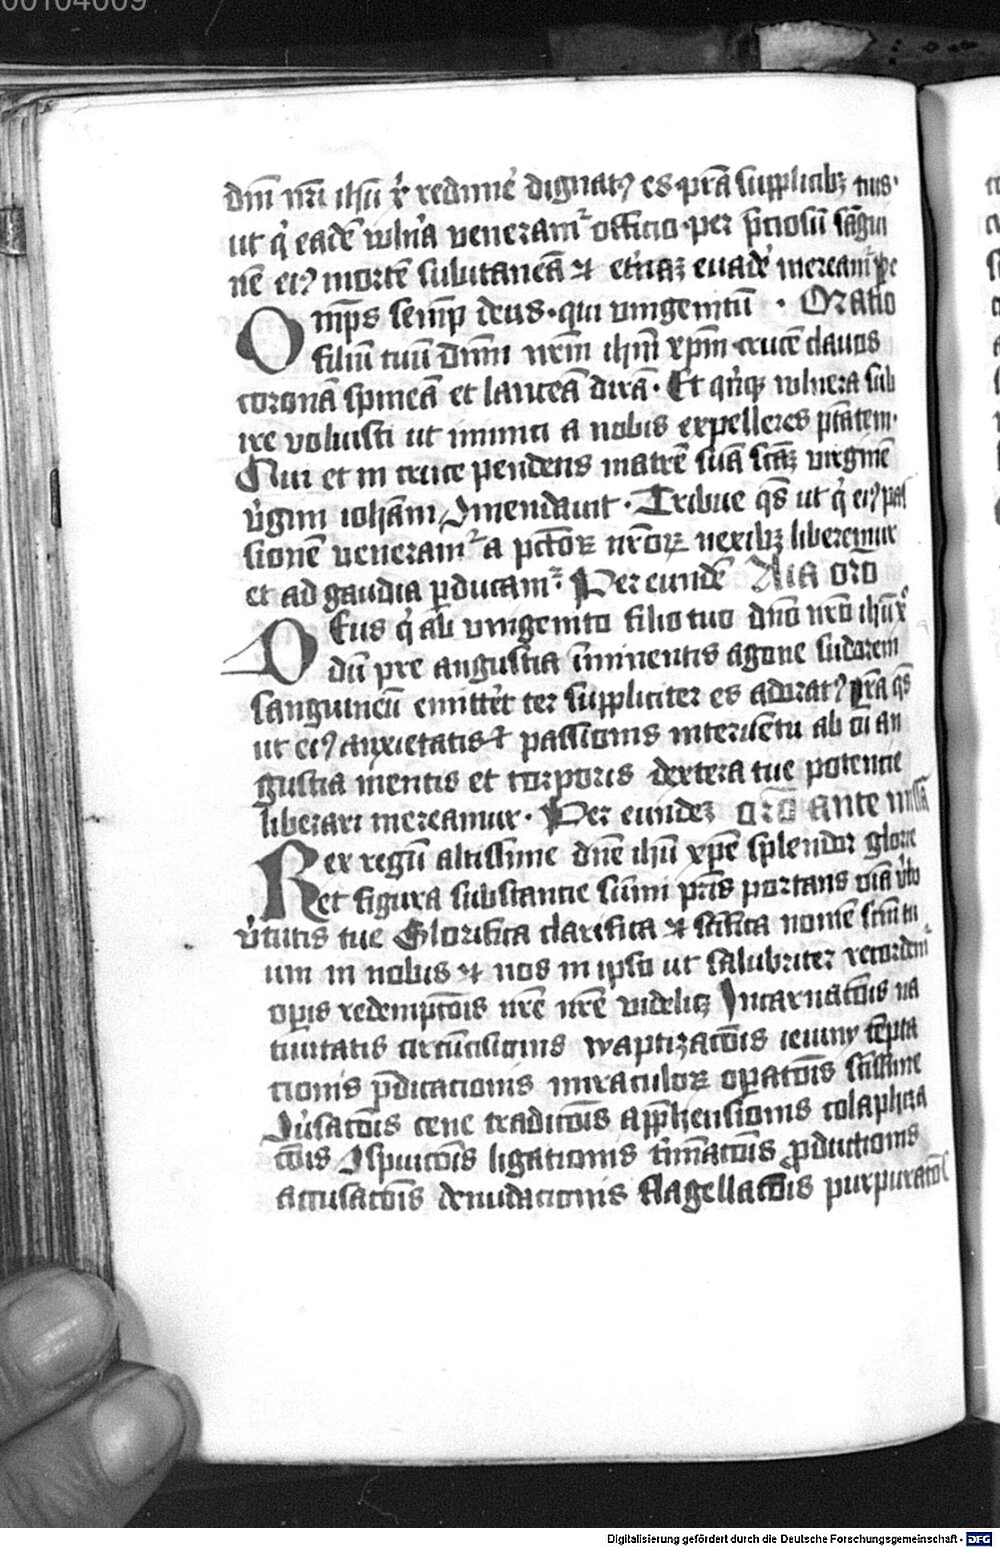 00104009
dm̄ nr̄i ih̄u xͥ redime͛ dignatꝰ es p̄ta supplicibꝫ tuis·
ut qͥ eadē wln̄a veneramͬ officio· per p̄ciosū sāgui
nē eiꝰ mortē subitaneā ⁊ et͛naꝫ euade͛ mereamͬ pe
Om̄ps semp̄ deus· qui vnigenitū · Oratio
filiū tuū dn̄m nrm̄ ih̄m xp̄m crucē clauos
coronā spineā et lanceā dirā· Et qn̄qꝫ wlnera sub
ire voluisti ut inimici a nobis expelleres p̄tatem·
Qui et in cruce pendens matrē suā sc̄aꝫ virginē
v͛gini ioh̄ani ꝯmendauit· Tribue qs̄ ut qͥ eiꝰ pas
sionē veneramͬ a pc̄toꝝ nr̄oꝝ nexibꝫ liberemur
et ad gaudia ꝑducamͬ· Per eundē Alia or̄o
Deus qͥ ab vnigenito filio tuo dn̄o nr̄o ih̄u xͦ
dū pre angustia īminentis agone sudorem
sanguineū emitte͛t ter suppliciter es adoratꝰ p̄ta qs̄
ut eiꝰ anxietatis ⁊ passionis intersetu ab oī an
gustia mentis et corporis dextera tue potencie
liberari mereamur· Per eundeꝫ or̄o ante missā
Rex regū altissime dn̄e ih̄u xp̄e splendor glorie
et figura substancie sūmi pr̄is portans oīa v͛bo
v͛tutis tue Glorifica clarifica ⁊ sc̄ifica nomē sc̄m tu
um in nobis ⁊ nos in ipso ut salubriter recordemͬ
opis redempc̄ōis nr̄e nr̄e videlicꝫ Incarnac̄ōis na
tiuitatis circūcisionis waptizac̄ōis ieiuny tēpta
cionis p̄dicacionis miraculoꝝ opac̄ōis sc̄issime
ꝯv͛sac̄ōis cene tradic̄ōis app̄hensionis colaphiza
c̄ōis ꝯspuic̄ōis ligationis c͛minac̄ōis ꝓductionis
accusac̄ōis denudacionis flagellac̄ōis purpurac̄ōis
Digitalisierung gefördert durch die Deutsche Forschungsgemeinschaft - DFG